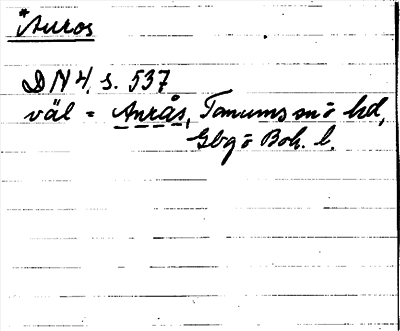 *Auros
DN 4, s. 537
väl = Anrås, Tanums sn o hd,
Gbg o Boh. l.